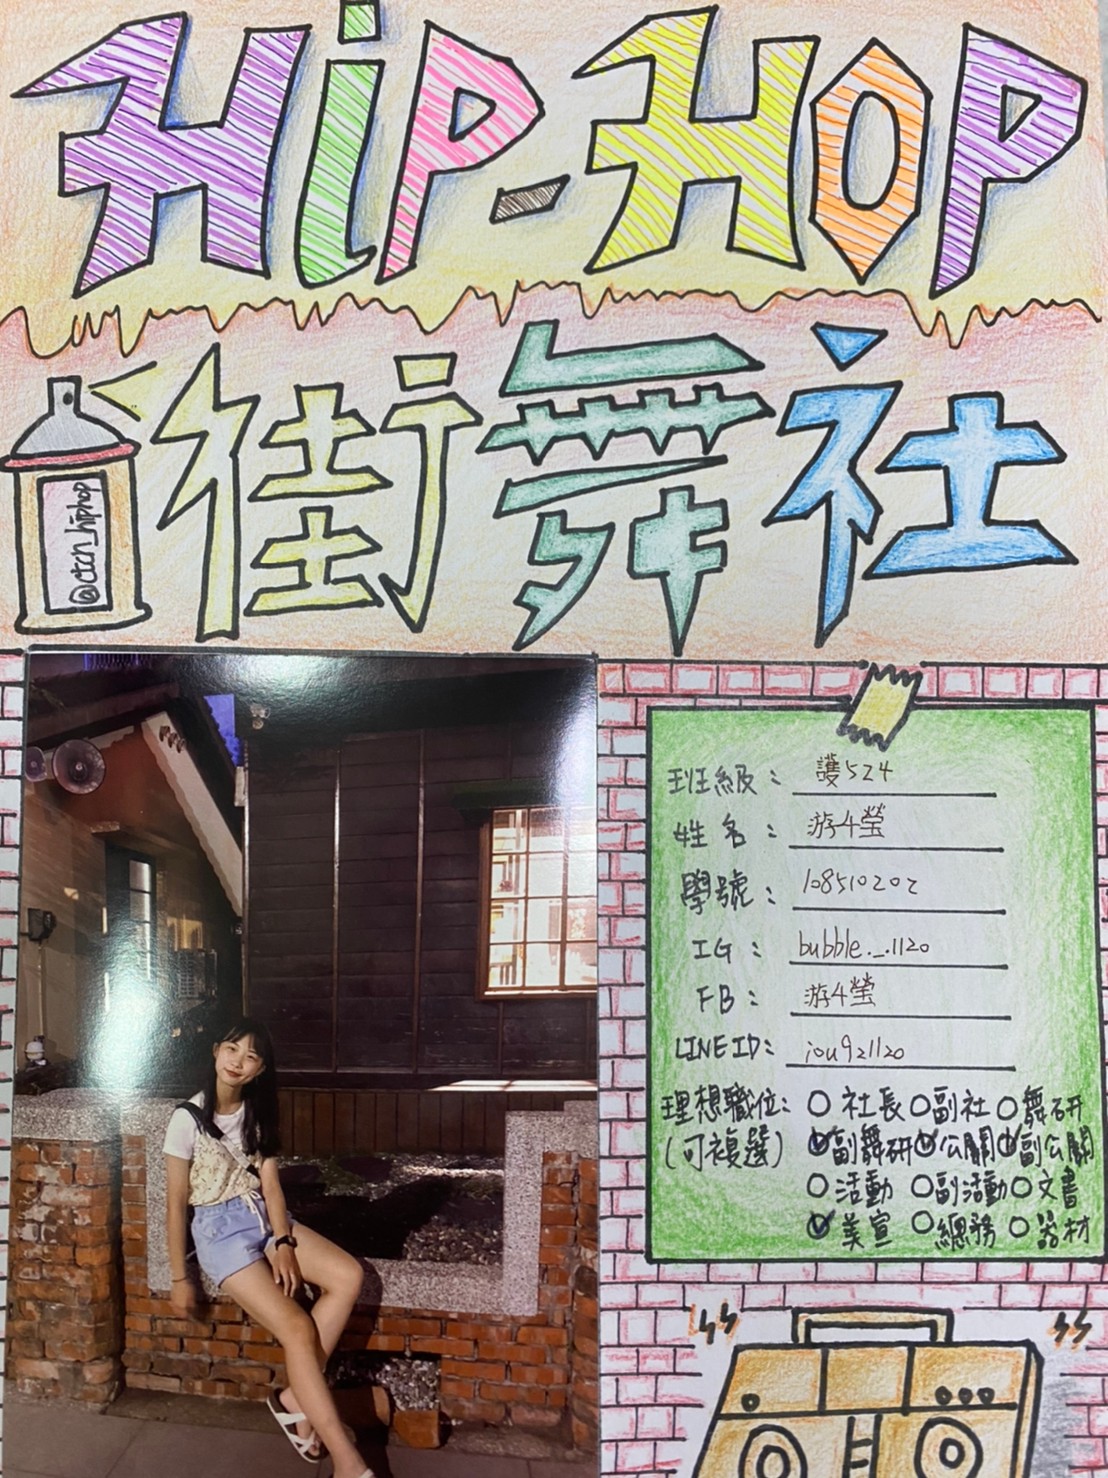 HiP-HOP
街舞社
@ctcn_hiphop
班級：護524
姓名：游4瑩
學號：108510202
IG：bubble._.1120
FB：游4瑩
LINE ID：iou921120
理想職位：○社長○副社○舞研
(可複選)○副舞研○公關○副公關
○活動○副活動○文書
○美宣○總務○器材